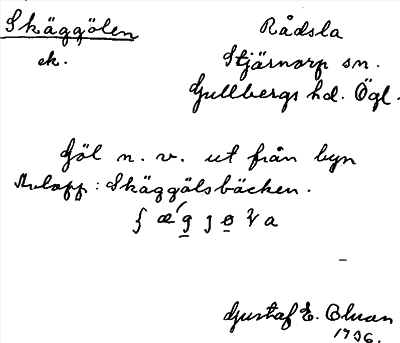 Skäggölen
Rådsla
ek.
Stjärnorp sn.
Gullbergs hd. Ögl.
Göl n. v. ut från byn
Avlopp: Skäggölsbäcken.
Gustaf E. Bluan
1736.